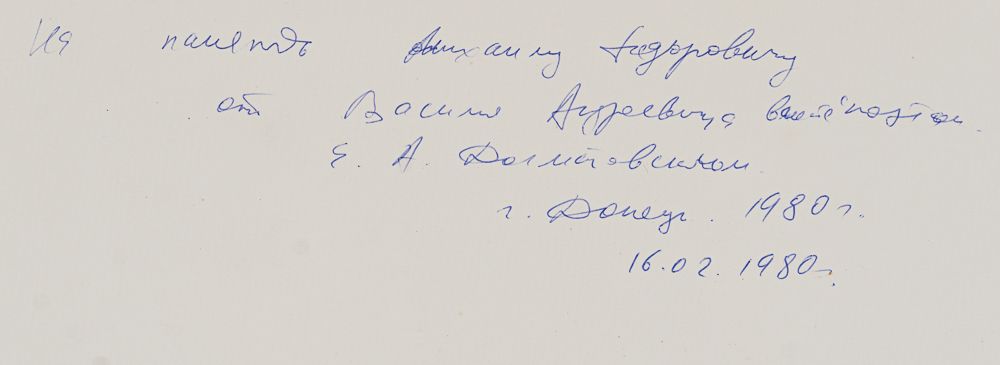 На память Михаилу Федоровичу
от Василия Андреевича
Е. А. Долматовским
г. Донецк. 1980 г.
16.02.1980 г.